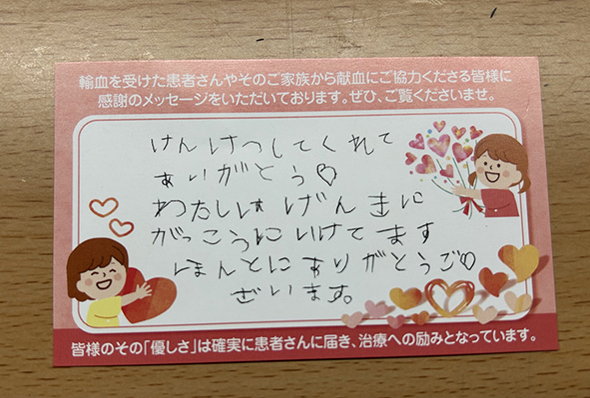 輸血を受けた患者さんやそのご家族から献血にご協力くださる皆様に
感謝のメッセージをいただいております。ぜひ、ご覧くださいませ。
けんけつしてくれて
ありがとう♡
わたしは げんきに
がっこうにいけてます
ほんとにありがとうご
ざいます。
皆様のその「優しさ」は確実に患者さんに届き、治療への励みとなっています。